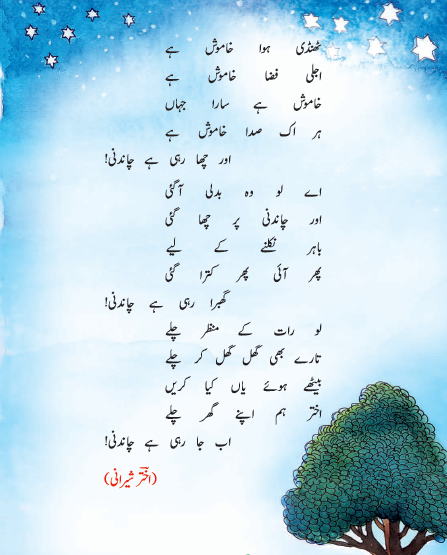 ٹھنڈی ہوا خاموش ہے
اجلی فضا خاموش ہے
خاموش ہے سارا جہاں
ہر اک صدا خاموش ہے
اور چھا رہی ہے چاندنی!
اے لو وہ بدلی آگئی
اور چاندنی پر چھا گئی
باہر نکلنے کے لیے
پھر آئی پھر کترا گئی
گھبرا رہی ہے چاندنی!
لو رات کے منظر چلے
تارے بھی گھل گھل کر چلے
بیٹھے ہوئے یاں کیا کریں
اختر ہم اپنے گھر چلے
اب جا رہی ہے چاندنی!
(اختر شیرانی)